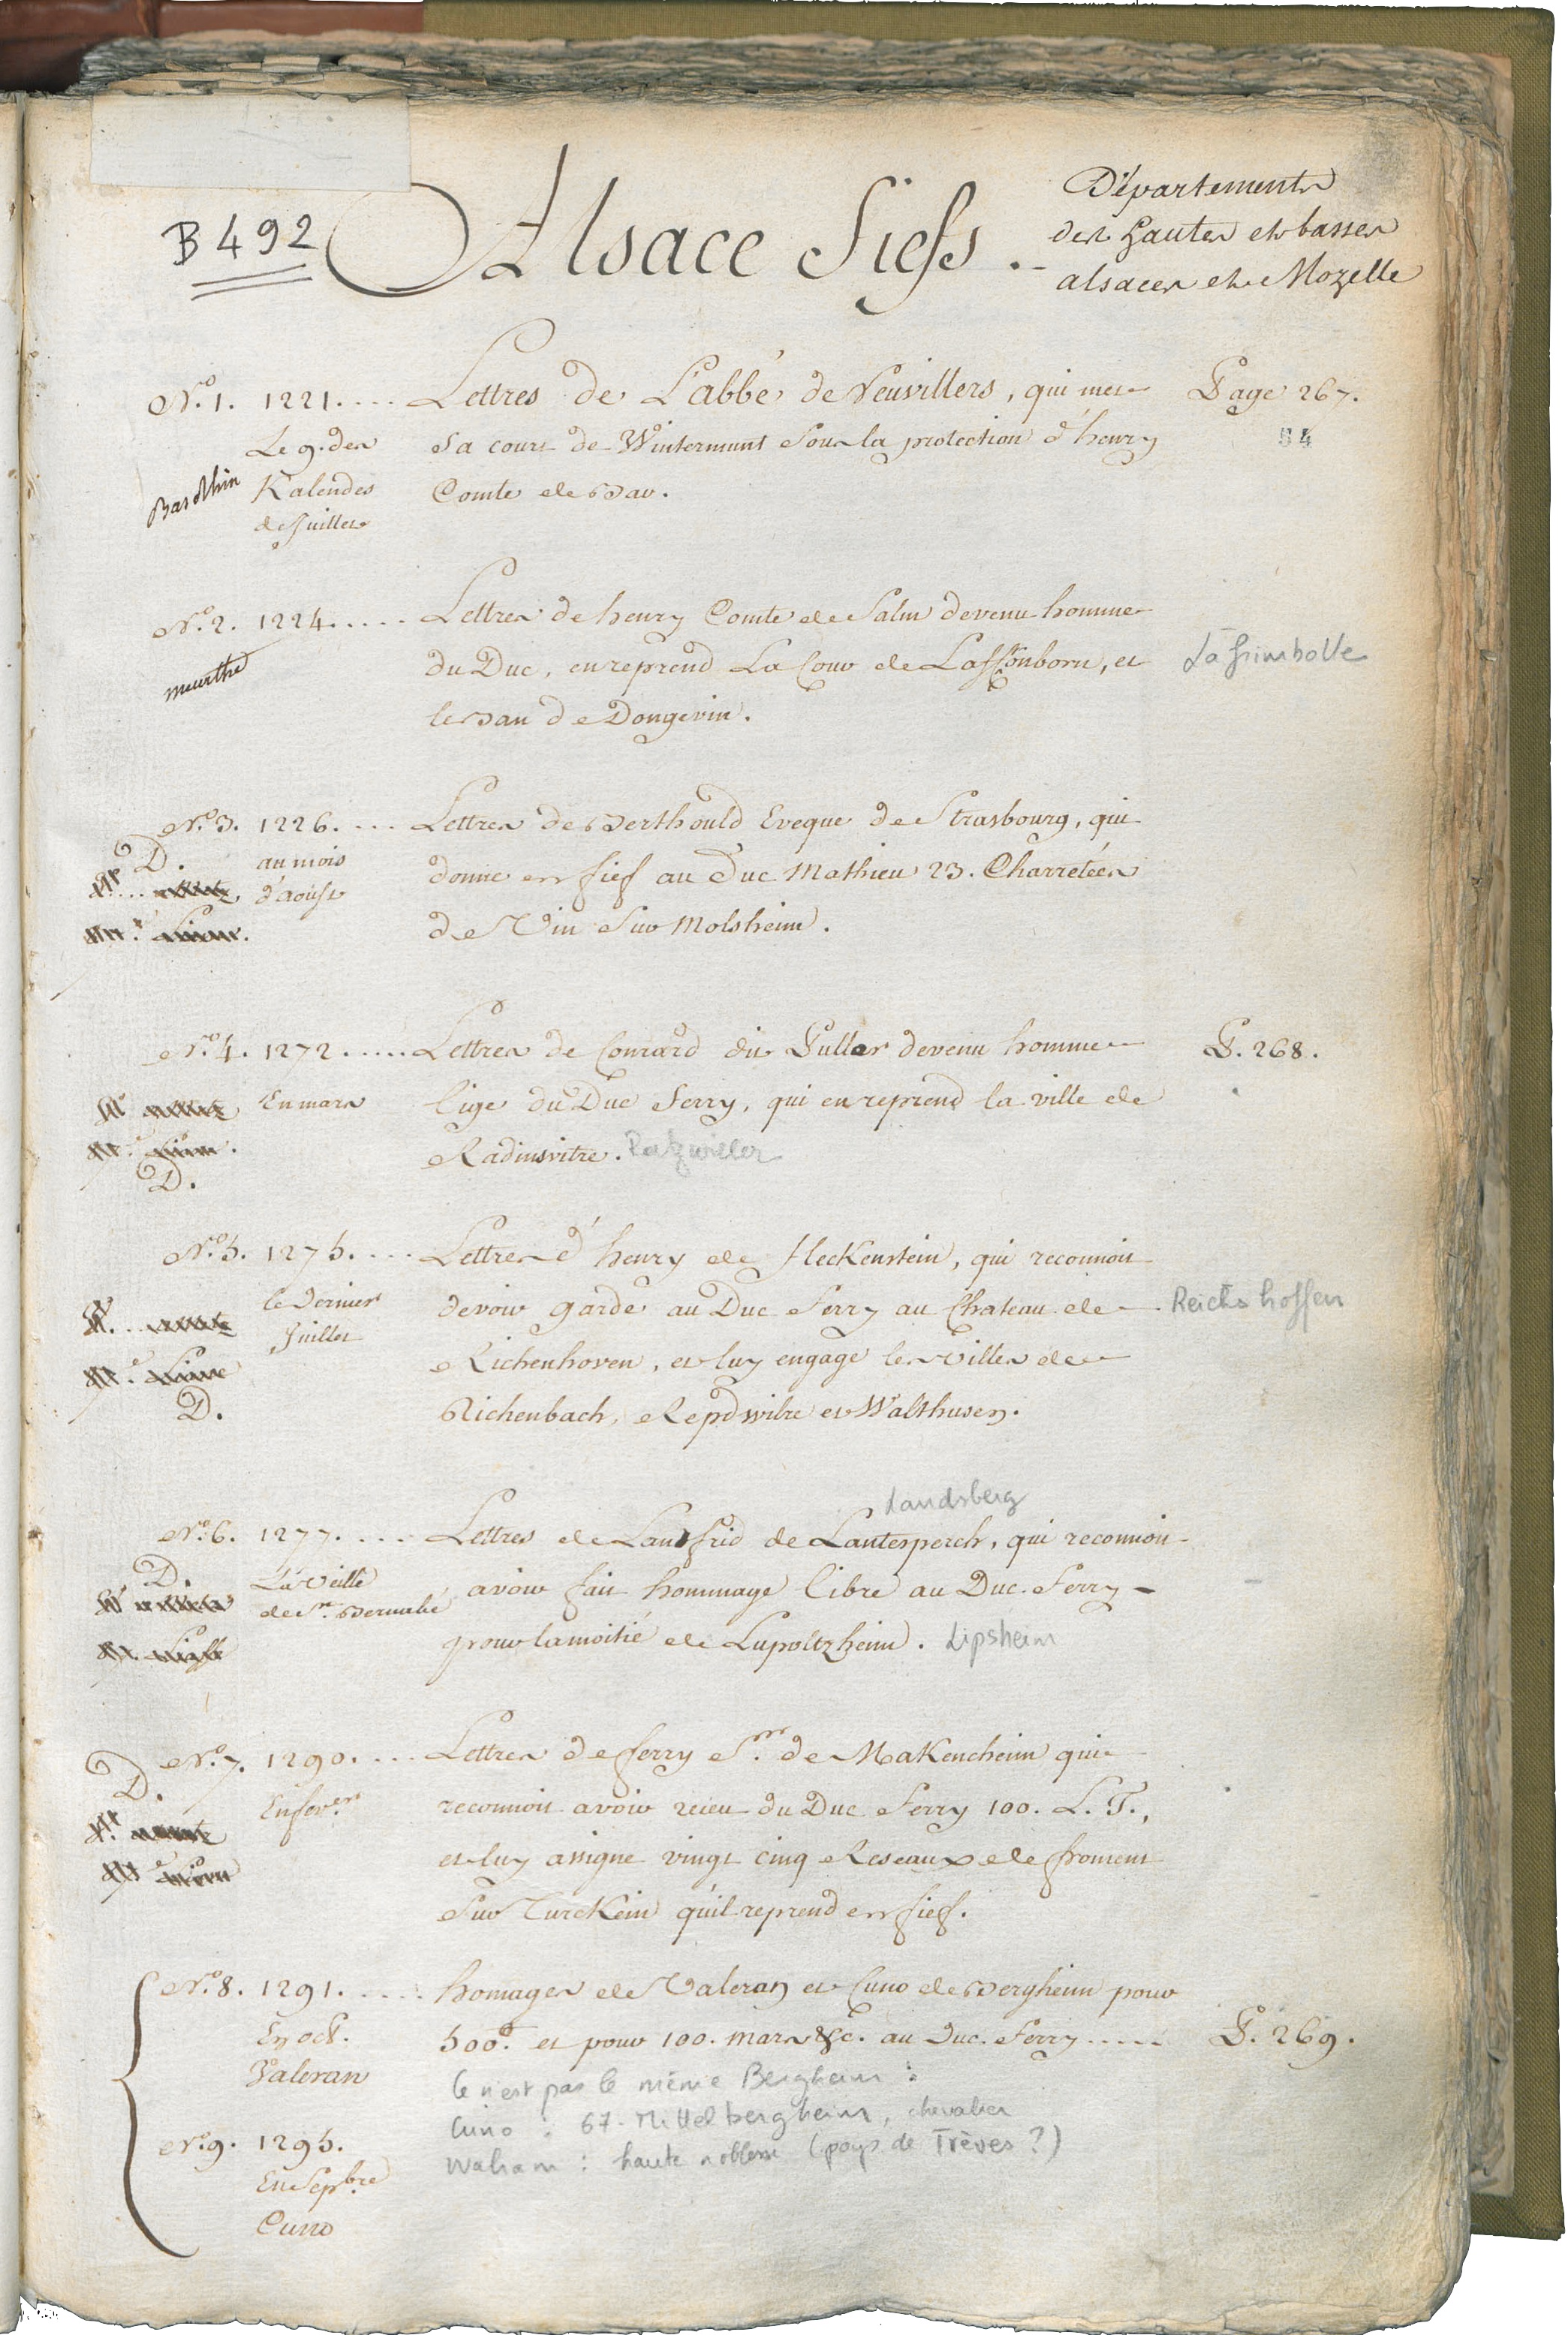 B 492
Alsace Fiefs.
Départements
des hautes et basses
alsaces et Mozelle
N.º 1. 1221. .... Lettres de L'abbé de Neuvillers, qui met Page 267.
Le 9. des sa cour de Wintermunt sous la protection d'henry 54
Bas Rhin Kalendes Comte de Bar.
de Juillet
N.º 2. 1224. .... Lettres de henry Comte de Salm devenu homme
meurthe du Duc, en reprend La Cour de Laffonborn, et La frimbolle
le ban de Dongevin.
N.º 3. 1226. .... Lettres de Berthould Eveque de Strasbourg, qui
D. au mois donne en fief au Duc Mathieu 23. Charretées
d'aoust de Vin sur Molsheim.
N.º 4. 1272. .... Lettres de Conrard dit Puller devenu homme P. 268.
En mars lige du Duc ferry, qui en reprend la ville de
Radinsvitre. Ratzwiller
D.
N.º 5. 1275. .... Lettres d'henry de fleckenstein, qui reconnoit
le dernier devoir garde au Duc ferry au Chateau de Reichshoffen
Juillet Richenhoven, et luy engage les villes de
D. Richenbach, Repdwilre et Walthusen.
Landsberg
N.º 6. 1277. .... Lettres de Lantfrid de Lantesperch, qui reconnoit
D. La Veille avoir fait hommage libre au Duc ferry
de S.t Bernabé pour la moitié de Lupoltzheim. Lipsheim
N.º 7. 1290. .... Lettres de ferry S.r de Makencheim qui
D. En fev.er reconnoit avoir receu du Duc ferry 100. L. T.,
et luy assigne vingt cinq Reseaux de froment
sur Turckein qu'il reprend en fief.
N.º 8. 1291. .... homages de Valeran et Cuno de Bergheim pour
En oct. 500.# et pour 100. mars &c. au Duc ferry ..... P. 269.
Valeran Ce n'est pas le même Bergheim :
Cuno : 67. Mittelbergheim, chevalier
N.º 9. 1295. Waliram : haute noblesse (pays de Trèves ?)
En Sep.bre
Cuno